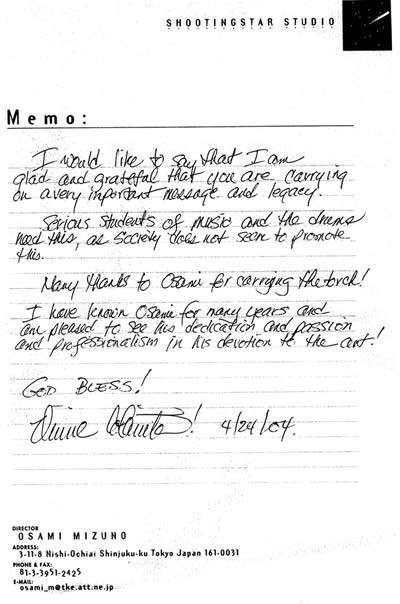 SHOOTINGSTAR STUDIO
Memo:
I would like to say that I am
glad and grateful that you are carrying
on a very important message and legacy.
Serious students of music and the drums
need this, as society does not seem to promote
this.
Many thanks to Osami for carrying the torch!
I have known Osami for many years and
am pleased to see his dedication and passion
and professionalism in his devotion to the art!
GOD BLESS!
Vinnie Colaiuta! 4/24/04.
DIRECTOR
OSAMI MIZUNO
ADDRESS:
3-11-8 Nishi-Ochiai Shinjuku-ku Tokyo Japan 161-0031
PHONE & FAX:
81-3-3951-2425
E-MAIL:
osami_m@tke.att.ne.jp